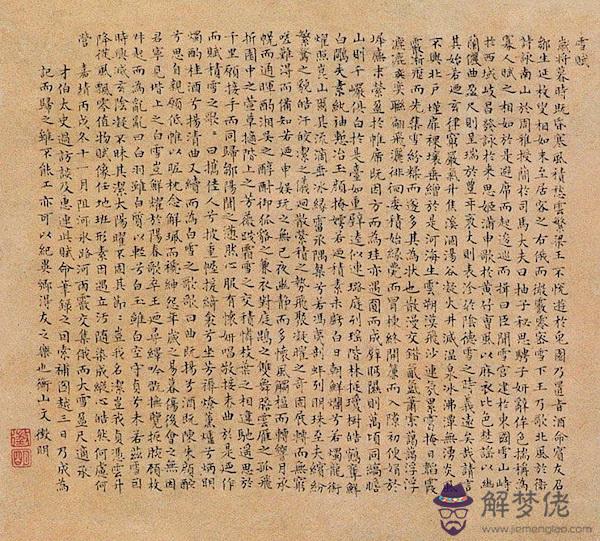 雪賦
歲將暮時既昏寒風積愁雲繁梁王不悅遊於兔園乃置旨酒命賓友召
鄒生延枚叟相如末至居客之右俄而微霰零密雪下王乃歌北風於衛
詩詠南山於周雅授簡於司馬大夫曰抽子秘思騁子妍辭侔色揣稱為
寡人賦之相如於是避席而起逡巡而揖曰臣聞雪宮建於東國雪山峙
於西域岐昌發詠於來思姬滿申歌於黃竹曹風以麻衣比色楚謠以幽
蘭儷曲盈尺則呈瑞於豐年袤丈則表沴於陰德雪之時義遠矣哉請言
其始若迺玄律窮嚴氣升焦溪涸湯谷凝火井滅溫泉冰沸潭無湧炎風
不興北戶墐扉裸壤垂繒於是河海生雲朔漠飛沙連氛累霭掩日韜霞
霰淅瀝而先集雪紛糅而遂多其為狀也散漫交錯氛氳蕭索藹藹浮浮
瀌瀌奕奕聯翩飛灑徘徊委積始緣甍而冒棟終開簾而入隙初便娟於
墀廡末縈盈於帷席既因方而為珪亦遇圓而成璧眄隰則萬頃同縞瞻
山則千巖俱白於是臺如重璧逵似連璐庭列瑤階林挺瓊樹皓鶴奪鮮
白鷴失素紈袖慙冶玉顏掩嫮若迺積素未虧白日朝鮮爛兮若燭龍銜
燿照崑山爾其流滴垂冰緣霤承隅粲兮若馮夷剖蚌列明珠至夫繽紛
繁騖之貌皓汗皦潔之儀迴散縈積之勢飛聚凝曜之奇固展轉而無窮
嗟難得而備知若迺申娛玩之無已夜幽靜而多懷風觸楹而轉響月承
幌而通暉酌湘吳之醇酎御狐貉之兼衣對庭鵾之雙舞瞻雲雁之孤飛
折園中之萱草摘階上之芳薇踐霜雪之交積憐枝葉之相違馳遙思於
千里願接手而同歸鄒陽聞之懣然心服有懷妍唱敬接末曲於是迺作
而賦積雪之歌曰攜佳人兮披重幄援綺衾兮坐芳褥燎薰爐兮炳明
燭酌桂酒兮揚清曲又續而為白雪之歌歌曰曲既揚兮酒既陳朱顏酡
兮思自親願低帷以昵枕念解珮而褫紳怨年歲之易暮傷後會之無因
君寧見階上之白雪豈鮮耀於陽春歌卒王迺尋繹吟翫撫覽扼腕顧枚
叔起而為亂亂曰白羽雖白質以輕兮白玉雖白空守貞兮未若茲雪因
時興滅玄陰凝不昧其潔太陽曜不固其節節豈我名潔豈我貞憑雲升
降從風飄零值物賦像任地班形素因遇立汙隨染成縱心皓然何慮何
營 嘉靖丙戌冬十一月阻河冰路河西霰交集俄而大雪盈尺適承
才伯太史過訪談及惠連此賦命筆錄之因索補圖越三日乃成為
記而歸之雖不能工亦可以紀異鄉得友之樂也衡山文徵明
解梦佬
www.jiemenglao.com